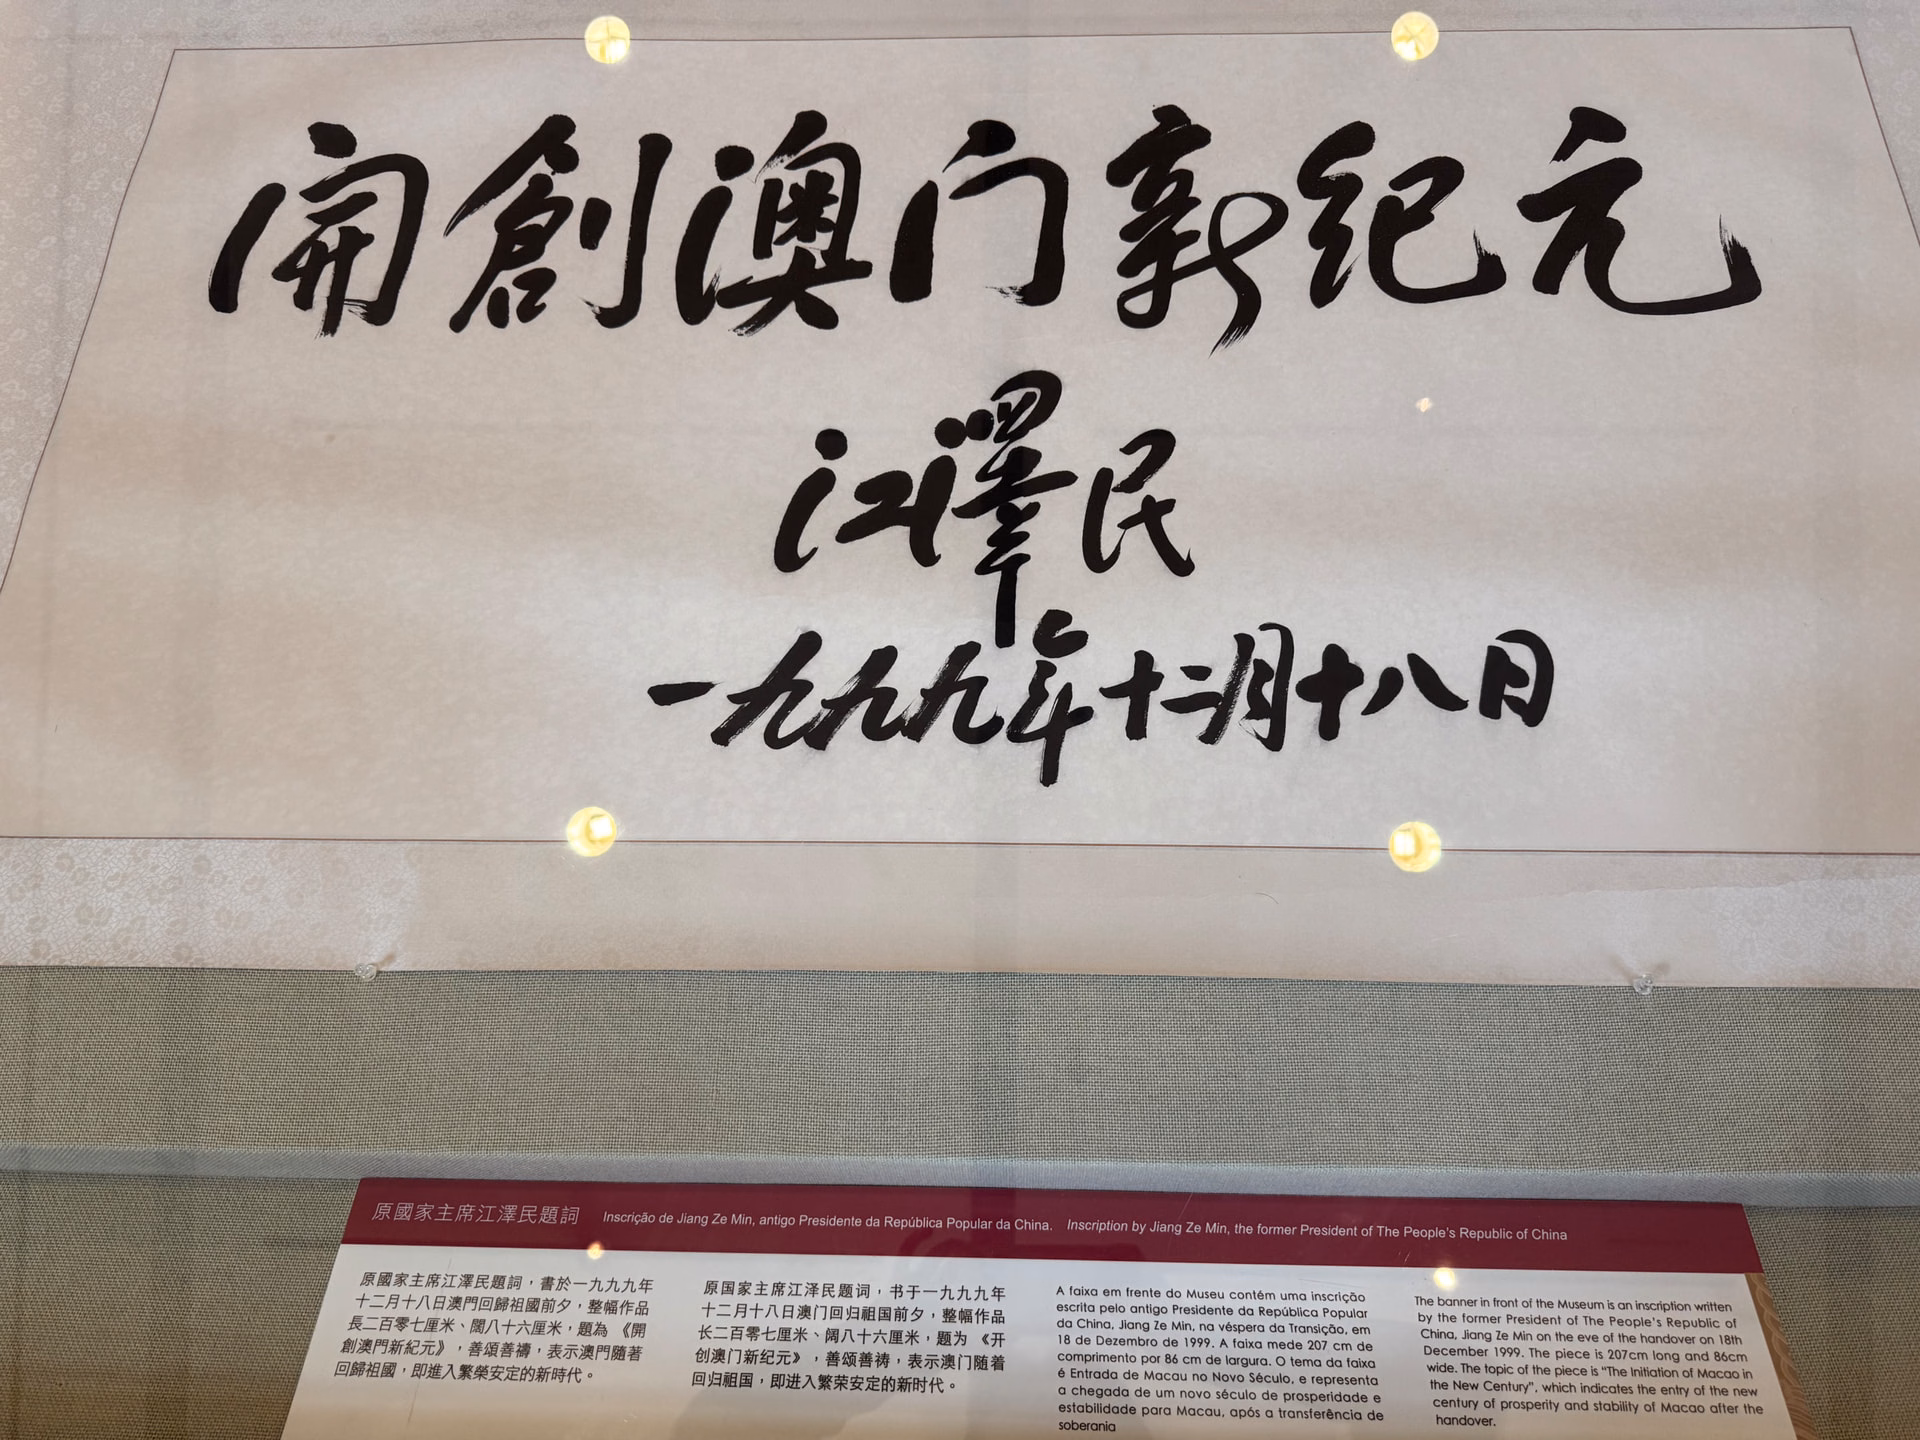 開創澳门新纪元
江澤民
一九九九年十二月十八日
原國家主席江澤民題詞 Inscrição de Jiang Ze Min, antigo Presidente da República Popular da China. Inscription by Jiang Ze Min, the former President of The People's Republic of China
原國家主席江澤民題詞，書於一九九九年
十二月十八日澳門回歸祖國前夕，整幅作品
長二百零七厘米、闊八十六厘米，題為《開
創澳門新紀元》，善頌善禱，表示澳門隨著
回歸祖國，即進入繁榮安定的新時代。
原国家主席江泽民题词，书于一九九九年
十二月十八日澳门回归祖国前夕，整幅作品
长二百零七厘米、阔八十六厘米，题为《开
创澳门新纪元》，善颂善祷，表示澳门随着
回归祖国，即进入繁荣安定的新时代。
A faixa em frente do Museu contém uma inscrição
escrita pelo antigo Presidente da República Popular
da China, Jiang Ze Min, na véspera da Transição, em
18 de Dezembro de 1999. A faixa mede 207 cm de
comprimento por 86 cm de largura. O tema da faixa
é Entrada de Macau no Novo Século, e representa
a chegada de um novo século de prosperidade e
estabilidade para Macau, após a transferência de
soberania
The banner in front of the Museum is an inscription written
by the former President of The People's Republic of
China, Jiang Ze Min on the eve of the handover on 18th
December 1999. The piece is 207cm long and 86cm
wide. The topic of the piece is “The Initiation of Macao in
the New Century”, which indicates the entry of the new
century of prosperity and stability of Macao after the
handover.